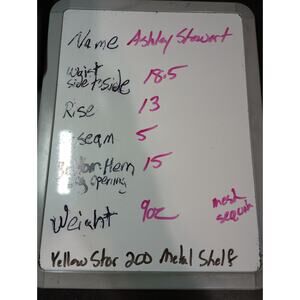 Name Ashley Stewart
Waist side to side 18.5
Rise 13
seam 5
Bottom: Hem leg opening 15
Weight 9oz
mesh sequin
Yellow Star 200 Metal Shelf